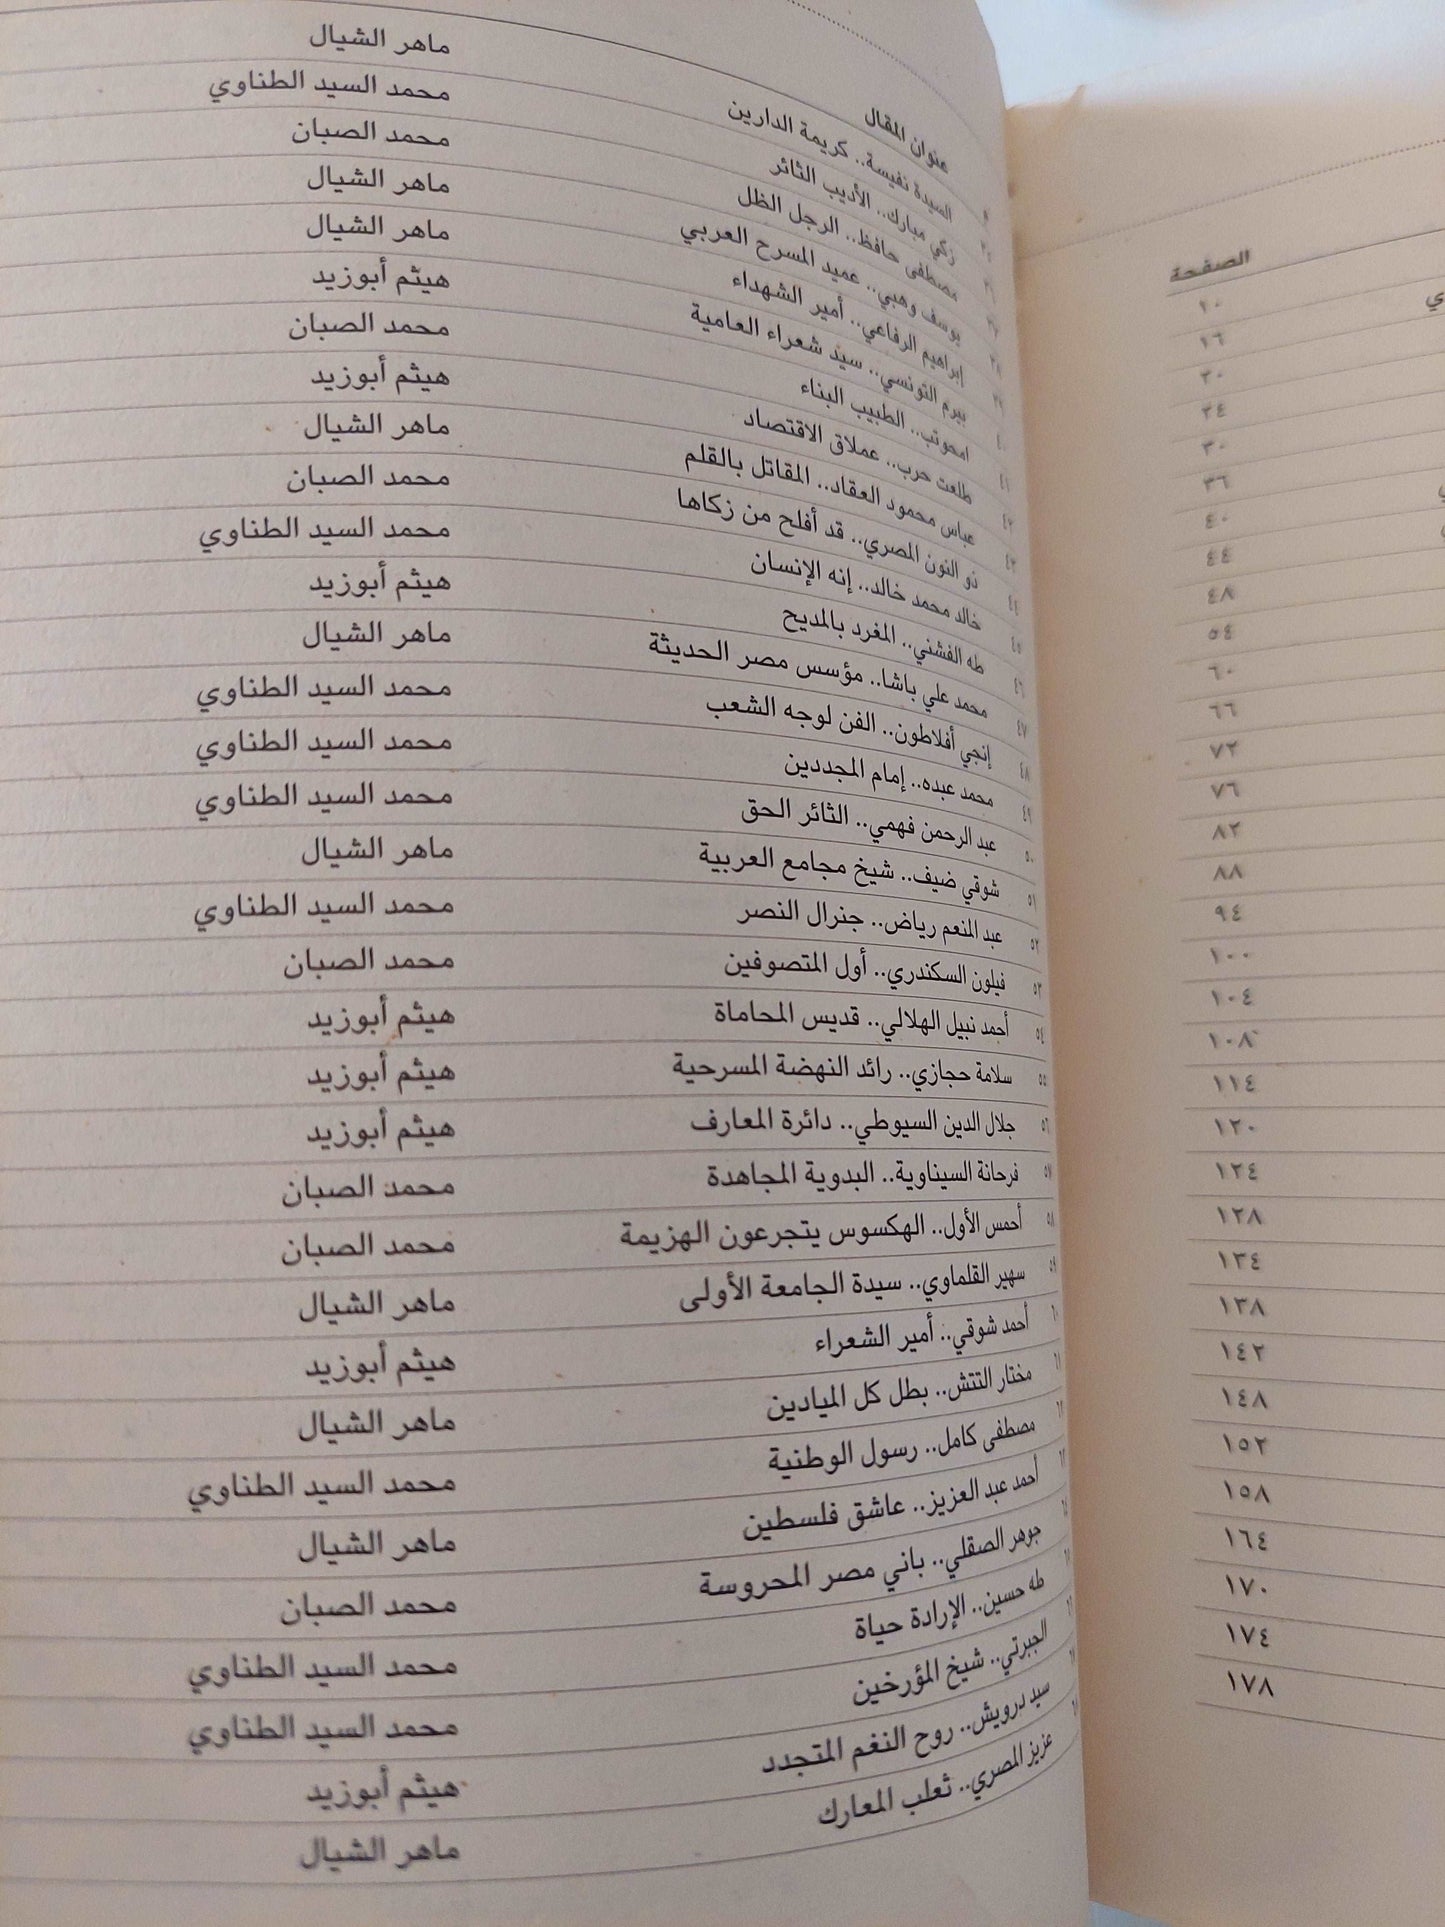 عنوان المقال
السيدة نفيسة.. كريمة الدارين ماهر الشيال
زكي مبارك.. الأديب الثائر محمد السيد الطناوي
مصطفى حافظ.. الرجل الظل محمد الصبان
٣٨ يوسف وهبي.. عميد المسرح العربي ماهر الشيال
٣٩ إبراهيم الرفاعي.. أمير الشهداء ماهر الشيال
٤٠ بيرم التونسي.. سيد شعراء العامية هيثم أبوزيد
٤١ امحوتب.. الطبيب البناء محمد الصبان
٤٢ طلعت حرب.. عملاق الاقتصاد هيثم أبوزيد
٤٣ عباس محمود العقاد.. المقاتل بالقلم ماهر الشيال
٤٤ ذو النون المصري.. قد أفلح من زكاها محمد الصبان
٤٥ خالد محمد خالد.. إنه الإنسان محمد السيد الطناوي
٤٦ طه الفشني.. المغرد بالمديح هيثم أبوزيد
٤٧ محمد علي باشا.. مؤسس مصر الحديثة ماهر الشيال
٤٨ إنجي أفلاطون.. الفن لوجه الشعب محمد السيد الطناوي
٤٩ محمد عبده.. إمام المجددين محمد السيد الطناوي
٥٠ عبد الرحمن فهمي.. الثائر الحق محمد السيد الطناوي
٥١ شوقي ضيف.. شيخ مجامع العربية ماهر الشيال
٥٢ عبد المنعم رياض.. جنرال النصر محمد السيد الطناوي
٥٣ فيلون السكندري.. أول المتصوفين محمد الصبان
٥٤ أحمد نبيل الهلالي.. قديس المحاماة هيثم أبوزيد
٥٥ سلامة حجازي.. رائد النهضة المسرحية هيثم أبوزيد
٥٦ جلال الدين السيوطي.. دائرة المعارف هيثم أبوزيد
٥٧ فرحانة السيناوية.. البدوية المجاهدة محمد الصبان
٥٨ أحمس الأول.. الهكسوس يتجرعون الهزيمة محمد الصبان
٥٩ سهير القلماوي.. سيدة الجامعة الأولى ماهر الشيال
أحمد شوقي.. أمير الشعراء هيثم أبوزيد
مختار التتش.. بطل كل الميادين ماهر الشيال
مصطفى كامل.. رسول الوطنية محمد السيد الطناوي
أحمد عبد العزيز.. عاشق فلسطين ماهر الشيال
جوهر الصقلي.. باني مصر المحروسة محمد الصبان
طه حسين.. الإرادة حياة محمد السيد الطناوي
الجبرتي.. شيخ المؤرخين محمد السيد الطناوي
سيد درويش.. روح النغم المتجدد هيثم أبوزيد
عزيز المصري.. ثعلب المعارك ماهر الشيال
الصفحة
١٠
١٦
٢٠
٢٤
٣٠
٣٦
٤٠
٤٤
٤٨
٥٤
٦٠
٦٦
٧٢
٧٦
٨٢
٨٨
٩٤
١٠٠
١٠٤
١٠٨
١١٤
١٢٠
١٢٤
١٢٨
١٣٤
١٣٨
١٤٢
١٤٨
١٥٢
١٥٨
١٦٤
١٧٠
١٧٤
١٧٨